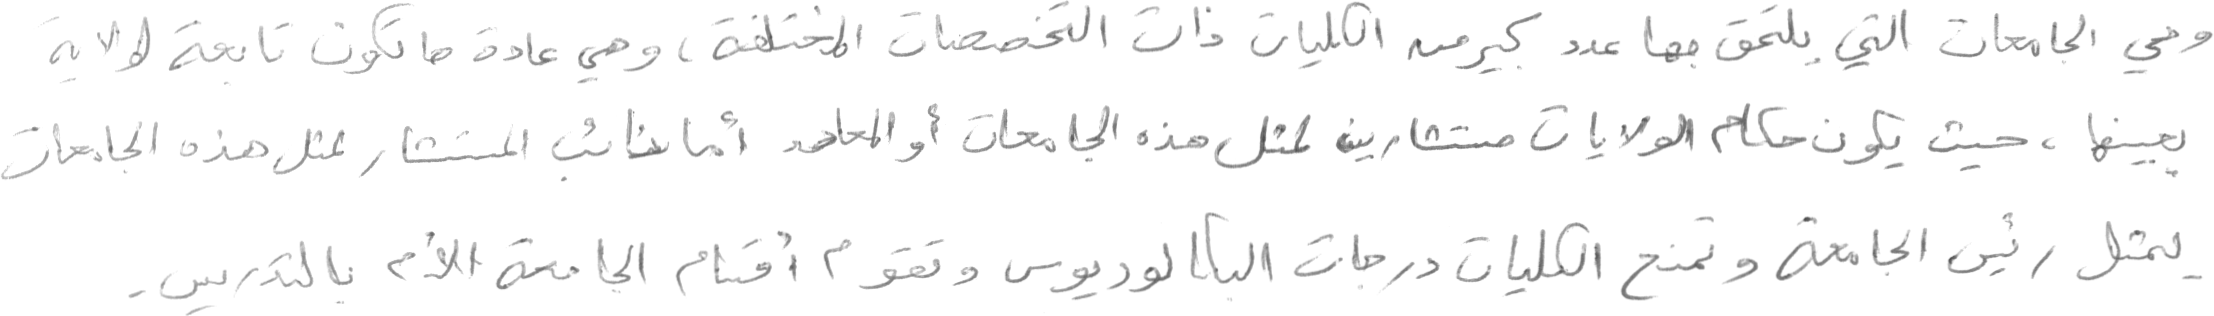 وهي الجامعات التي يلتحق بها عدد كبير من الكليات ذات التخصصات المختلفة، وهي عادة ما تكون تابعة لولاية
بعينها، حيث يكون حكام الولايات مستشارين لمثل هذه الجامعات أو المعاهد أما نائب المستشار لمثل هذه الجامعات
يمثل رئيس الجامعة وتمنح الكليات درجات البكالوريوس وتقوم أقسام الجامعة الأم بالتدريس.